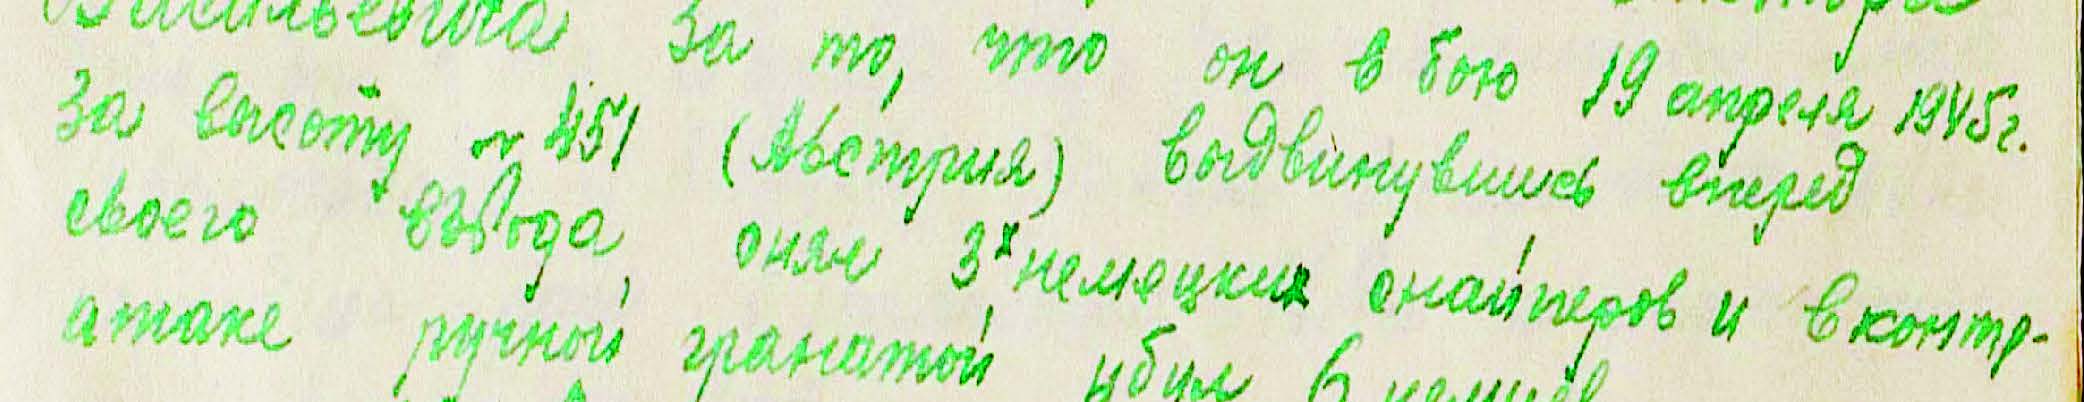 Васильевича за то, что он в бою 19 апреля 1945г.
за высоту ~ 451 (Австрия) выдвинувшись вперед
своего взвода, снял 3х немецких снайперов и в контр-
атаке ручной гранатой убил 6 немцев